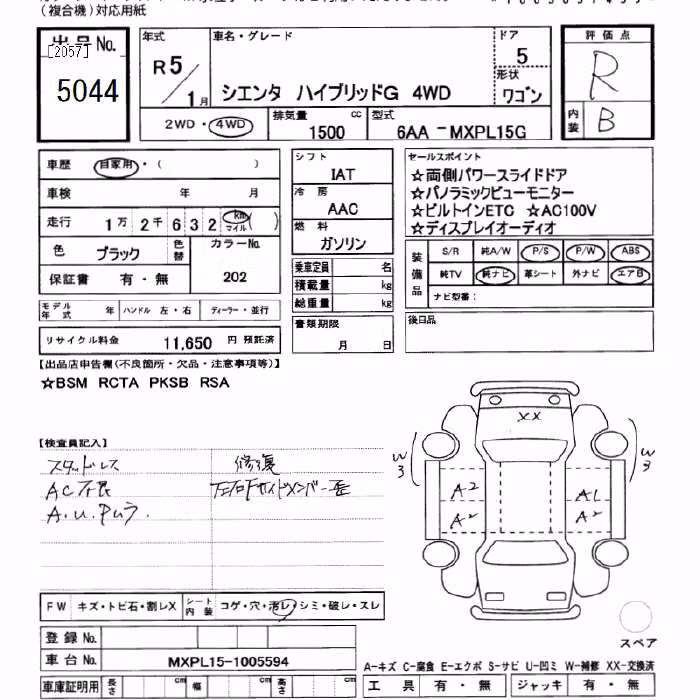 (複合機)対応用紙
出品No.
[2057]
5044
年式
R5/1月
車名・グレード
シエンタ ハイブリッドG 4WD
ドア
5
形状
ワゴン
評価点
R
内装
B
2WD・4WD
排気量
1500 cc
型式
6AA-MXPL15G
車歴 自家用・( )
車検 年 月
走行 1万2千632 km マイル ( )
色 ブラック 色替
カラーNo.
202
保証書 有・無
モデル年式 年 ハンドル 左・右 ディーラー・並行
リサイクル料金 11,650 円 預託済
シフト
IAT
冷房
AAC
燃料
ガソリン
乗車定員 名
積載量 kg
総重量 kg
書類期限
月 日
セールスポイント
☆両側パワースライドドア
☆パノラミックビューモニター
☆ビルトインETC ☆AC100V
☆ディスプレイオーディオ
装備品
S/R 純A/W P/S P/W ABS
純TV 純ナビ 革シート 外ナビ エアB
ナビ型番:
後日品
【出品店申告欄(不良箇所・欠品・注意事項等)】
☆BSM RCTA PKSB RSA
【検査員記入】
スタッドレス
AC不良
A.U.Pムラ.
修復
左右Fサイドメンバー歪
XX
W3
W3
A2
A2
A1
A2
FW キズ・トビ石・割レX シート内装 コゲ・穴・汚レ・シミ・破レ・スレ
登録No.
車台No. MXPL15-1005594
車庫証明用 長さ cm 幅 cm 高さ cm
スペア
A-キズ C-腐食 E-エクボ S-サビ U-凹ミ W-補修 XX-交換済
工具 有・無 ジャッキ 有・無